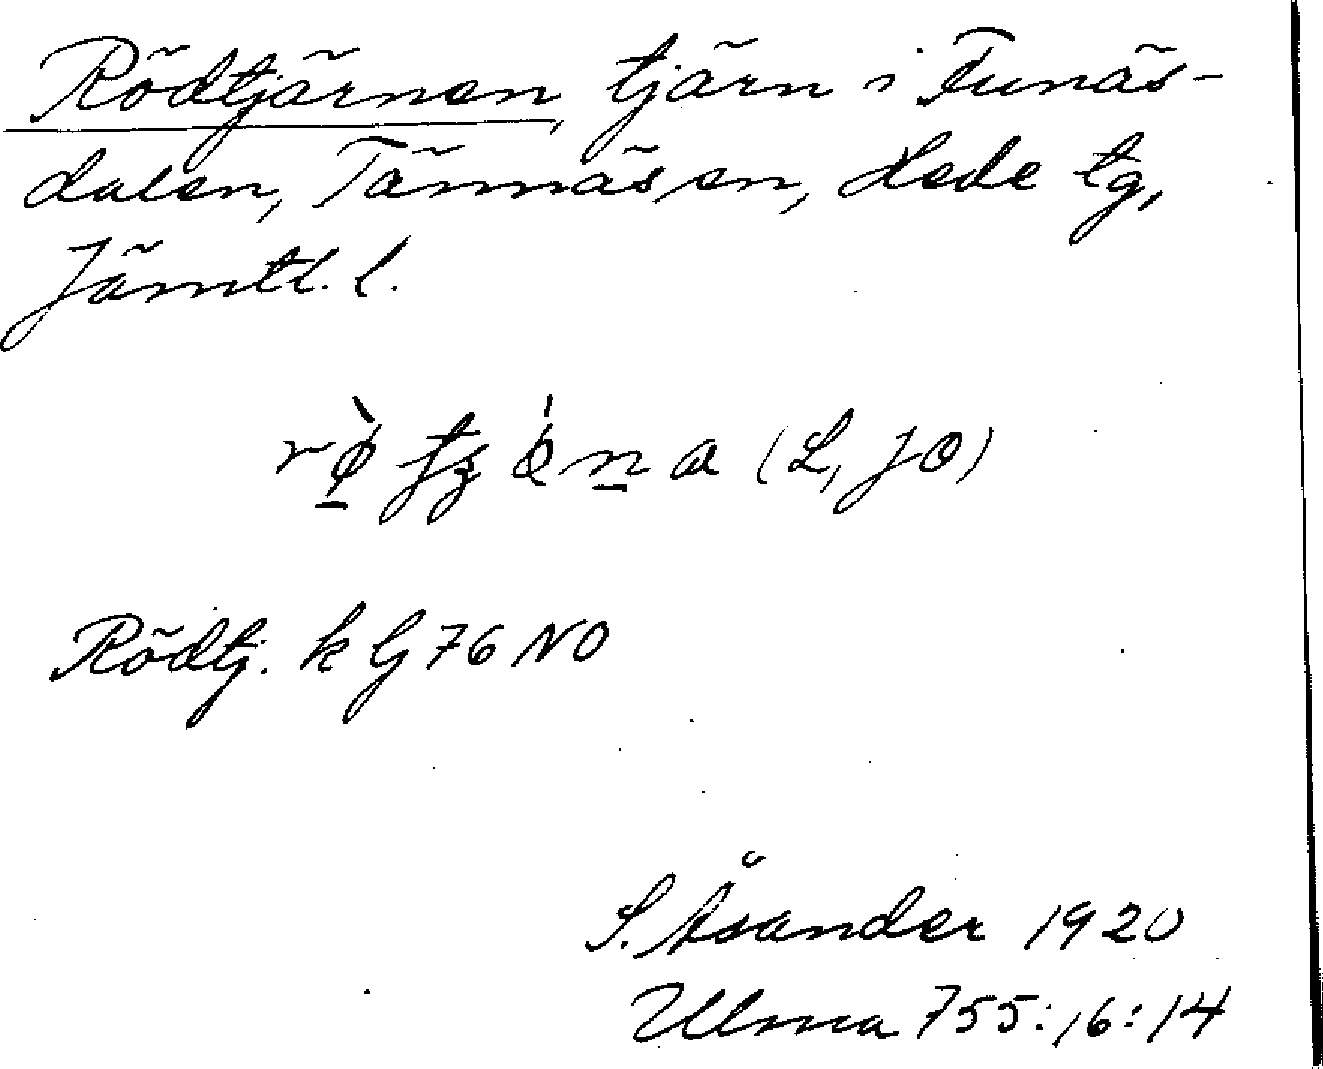 Rödtjärnen, tjärn i Funäs-
dalen, Tännäs sn, Hede tg,
Jämtl. l.
(L, JO)
Rödtj. k G 76 NO
S. Åsander 1920
Ulma 755:16:14